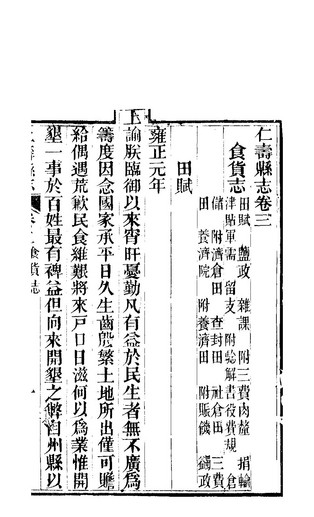 仁壽縣志卷三
食貨志
田賦 鹽政 雜課 附三費肉釐 捐輸
津貼軍需 留支 附解書役費規 倉
儲 附濟倉田 查封田 社倉田 三費
田 養濟院 附養濟田 附賑饑 蠲政
田賦
雍正元年
上諭朕臨御以來宵旰憂勤凡有益於民生者無不廣爲
籌度因念國家承平日久生齒殷繁土地所出僅可贍
給偶遇荒歉民食維艱將來戶口日滋何以爲業惟開
墾一事於百姓最有裨益但向來開墾之弊自州縣以
食貨志